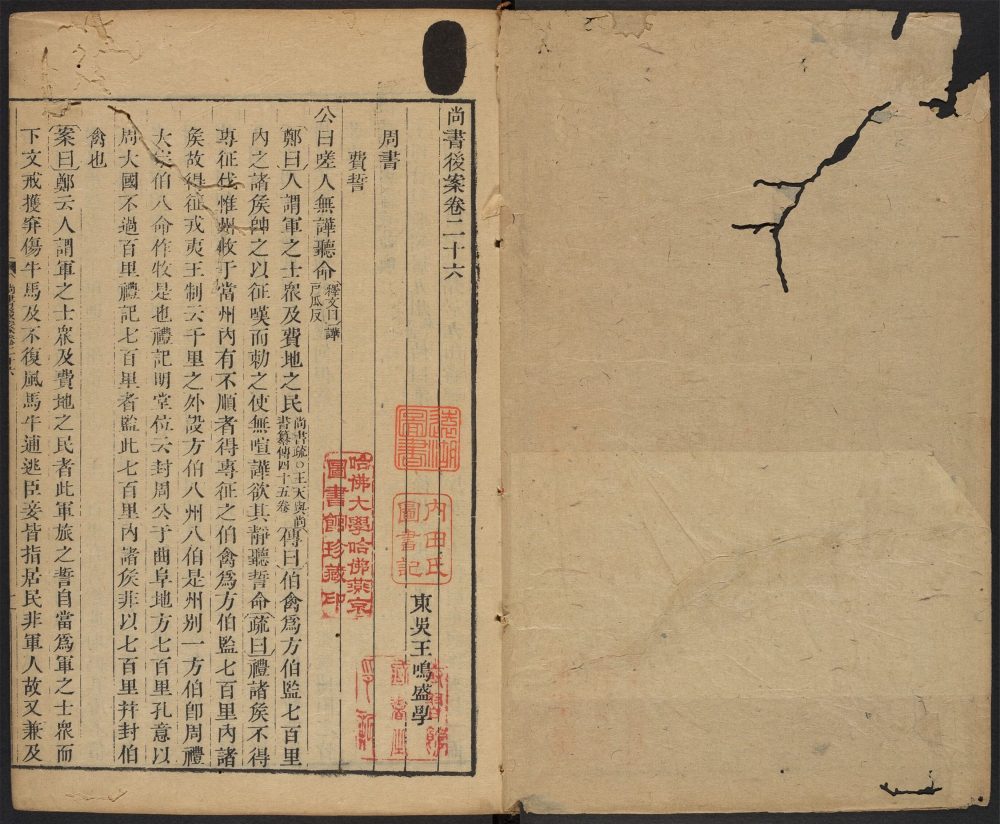 尚書後案卷二十六
東吳王鳴盛學
周書
費誓
公曰嗟人無譁聽命釋文曰譁戸瓜反
鄭曰人謂軍之士衆及費地之民尚書疏○王天與尚書纂傳四十五卷傳曰伯禽爲方伯監七百里
內之諸矦帥之以征嘆而勑之使無喧譁欲其靜聽誓命疏曰禮諸矦不得
專征伐惟州牧于當州內有不順者得專征之伯禽爲方伯監七百里內諸
矦故得征戎夷王制云千里之外設方伯八州八伯是州别一方伯卽周禮
大宗伯八命作牧是也禮記明堂位云封周公于曲阜地方七百里孔意以
周大國不過百里禮記七百里者監此七百里內諸矦非以七百里幷封伯
禽也
案曰鄭云人謂軍之士衆及費地之民者此軍旅之誓自當爲軍之士衆而
下文戒擭穽傷牛馬及不復風馬牛逋逃臣妾皆指居民非軍人故又兼及
遠湖圖書
內田氏圖書記
哈佛大學哈佛燕京圖書館珍藏印